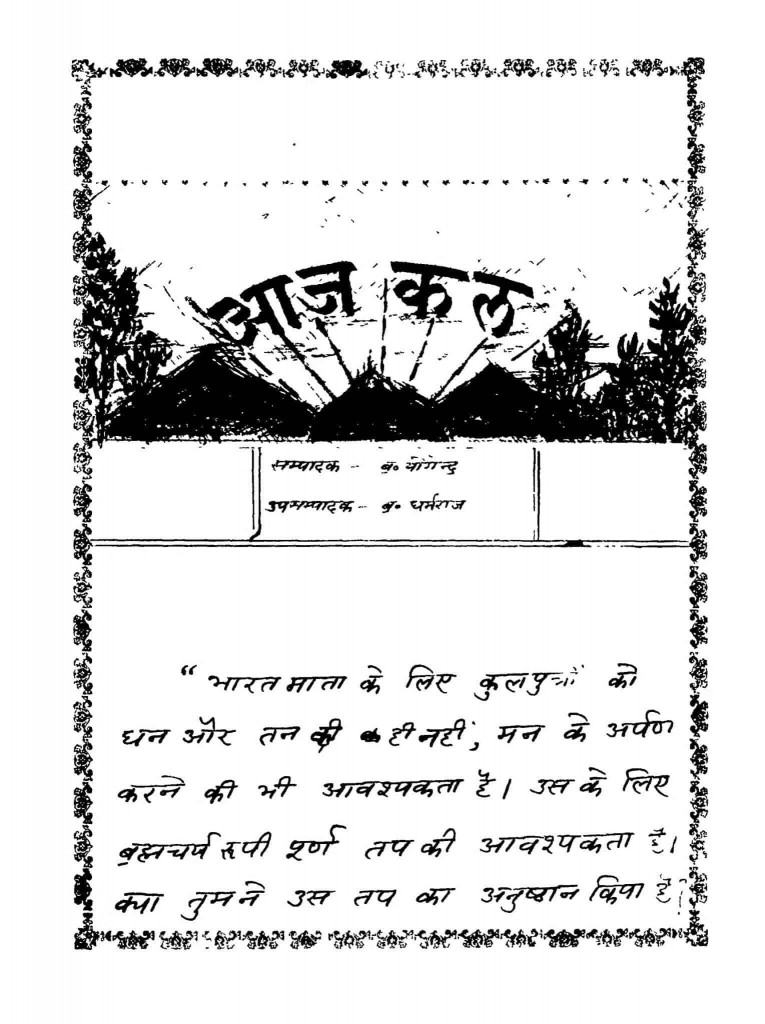 आज कल
सम्पादक - ब्र॰ योगेन्द्र
उपसम्पादक - ब्र॰ धर्मराज
“ भारत माता के लिए कुलपुत्रों को
धन और तन की ही नहीं, मन के अर्पण
करने की भी आवश्यकता है। उस के लिए
ब्रह्मचर्य रूपी पूर्ण तप की आवश्यकता है।
क्या तुम ने उस तप का अनुष्ठान किया है?